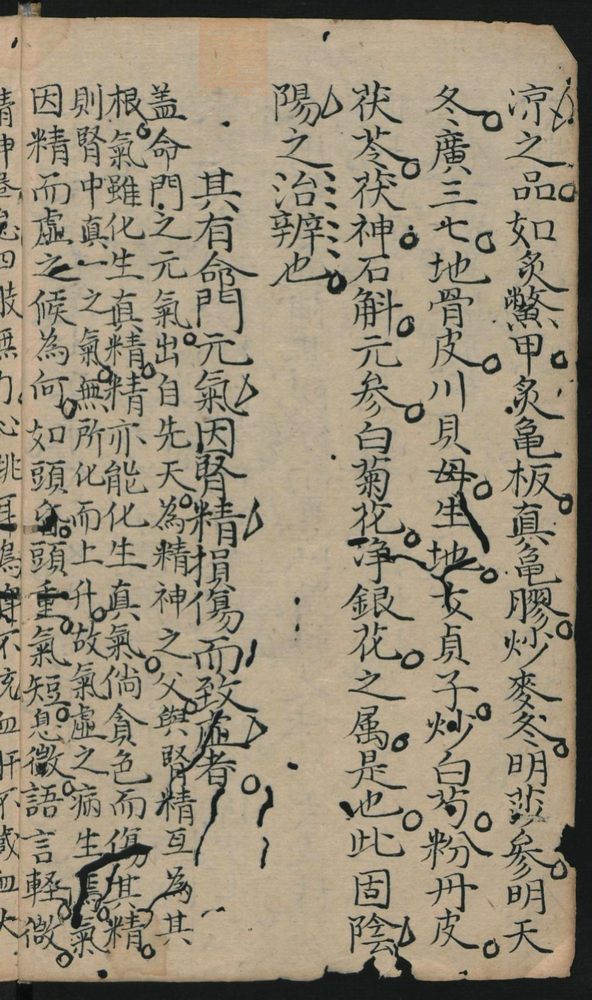 凉之品如炙鱉甲炙亀板真亀膠炒麥冬明沙參明天
冬廣三七地骨皮川貝母生地女貞子炒白芍粉丹皮
茯苓茯神石斛元参白菊花净銀花之属是也此固陰
陽之治辨也
其有命門元氣因腎精損傷而致虛者
盖命門之元氣出自先天為精神之父與腎精互為其
根氣雖化生真精精亦能化生真氣倘貪色而傷其精
則腎中真一之氣無所化而上升故氣虛之病生焉氣
因精而虛之候為何如頭頭重氣短息微語言輕微
四肢無力心跳耳鳴不充血肝不藏血大